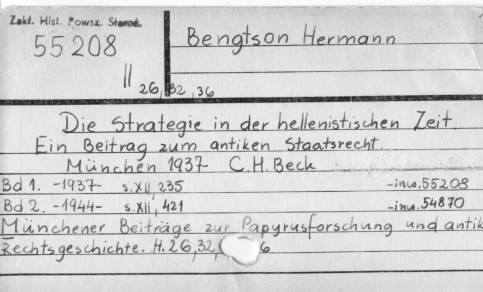 Zakł. Hist. Powsz. Staroż.
55208
II 26, 32, 36
Bengtson Hermann
Die Strategie in der hellenistischen Zeit
Ein Beitrag zum antiken Staatsrecht.
München 1937 C.H.Beck
Bd 1. -1937- s.XII, 235 -inw.55208
Bd 2. -1944- s.XII, 421 -inw.54870
Münchener Beiträge zur Papyrusforschung und antik
Rechtsgeschichte. H.26,32, 6